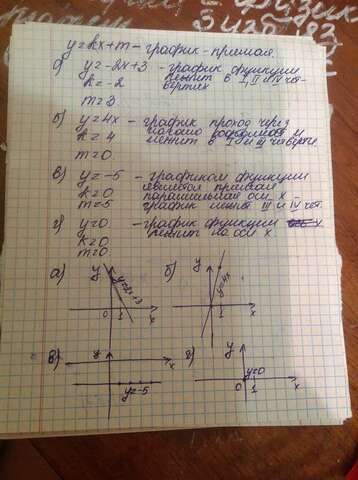 y=kx+m - график - прямая.
а) y=-2x+3 - график функции
k=-2 лежит в I, II и IV чет-
вертях
m=3
б) y=4x - график проход через
k=4 начало координат и
лежит в I и III четверти.
m=0
в) y=-5 - графиком функции
является прямая
k=0 параллельная оси x -
m=5 график лежит III и IV чет.
г) y=0 - график функции
k=0 лежит на оси x.
m=0
а) y y=-2x+3 0 1 x
б) y y=4x 0 1 x
в) y x y=-5
г) y y=0 0 1 x